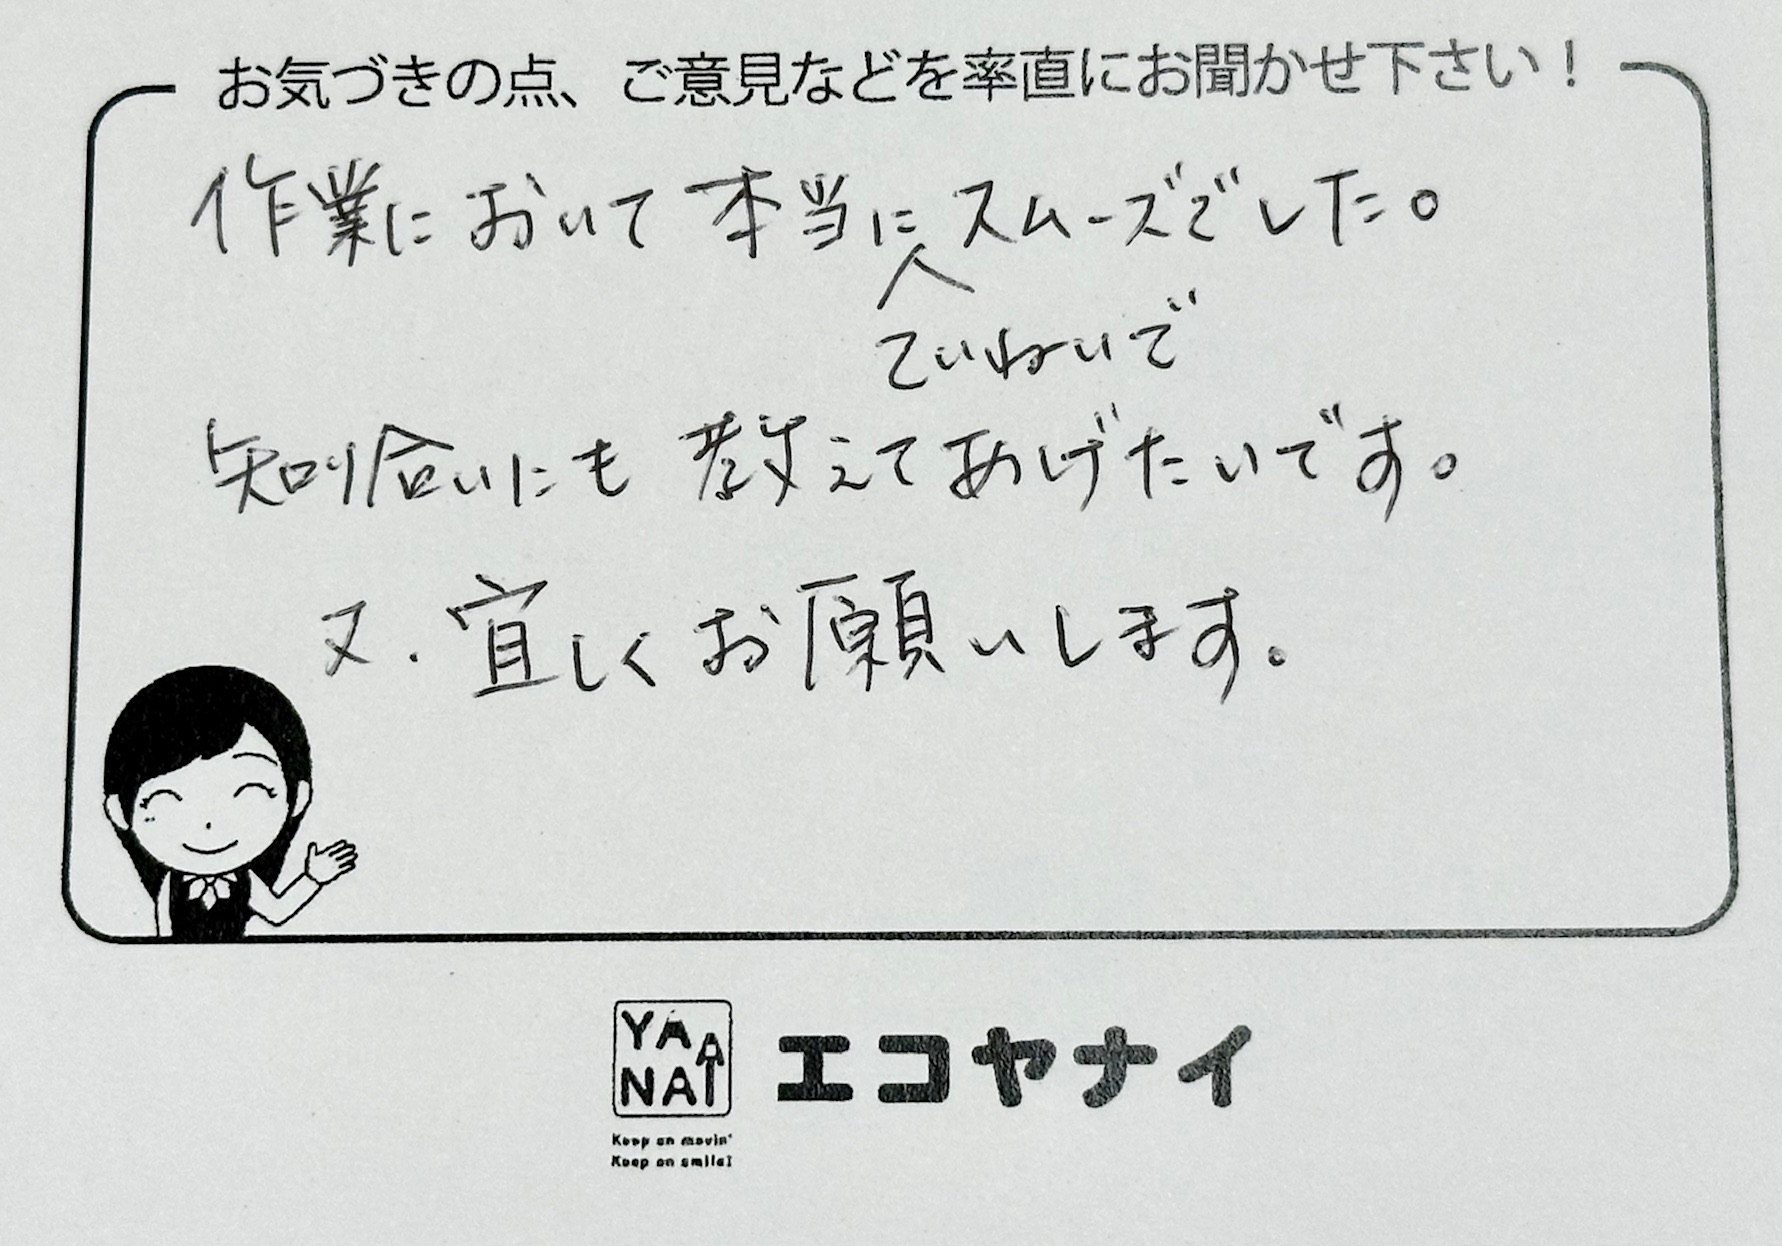 お気づきの点、ご意見などを率直にお聞かせ下さい！
作業において本当にスムーズでした。
ていねいで
知り合いにも教えてあげたいです。
又、宜しくお願いします。
YANAI
エコヤナイ
Keep on movin'
Keep on smile!